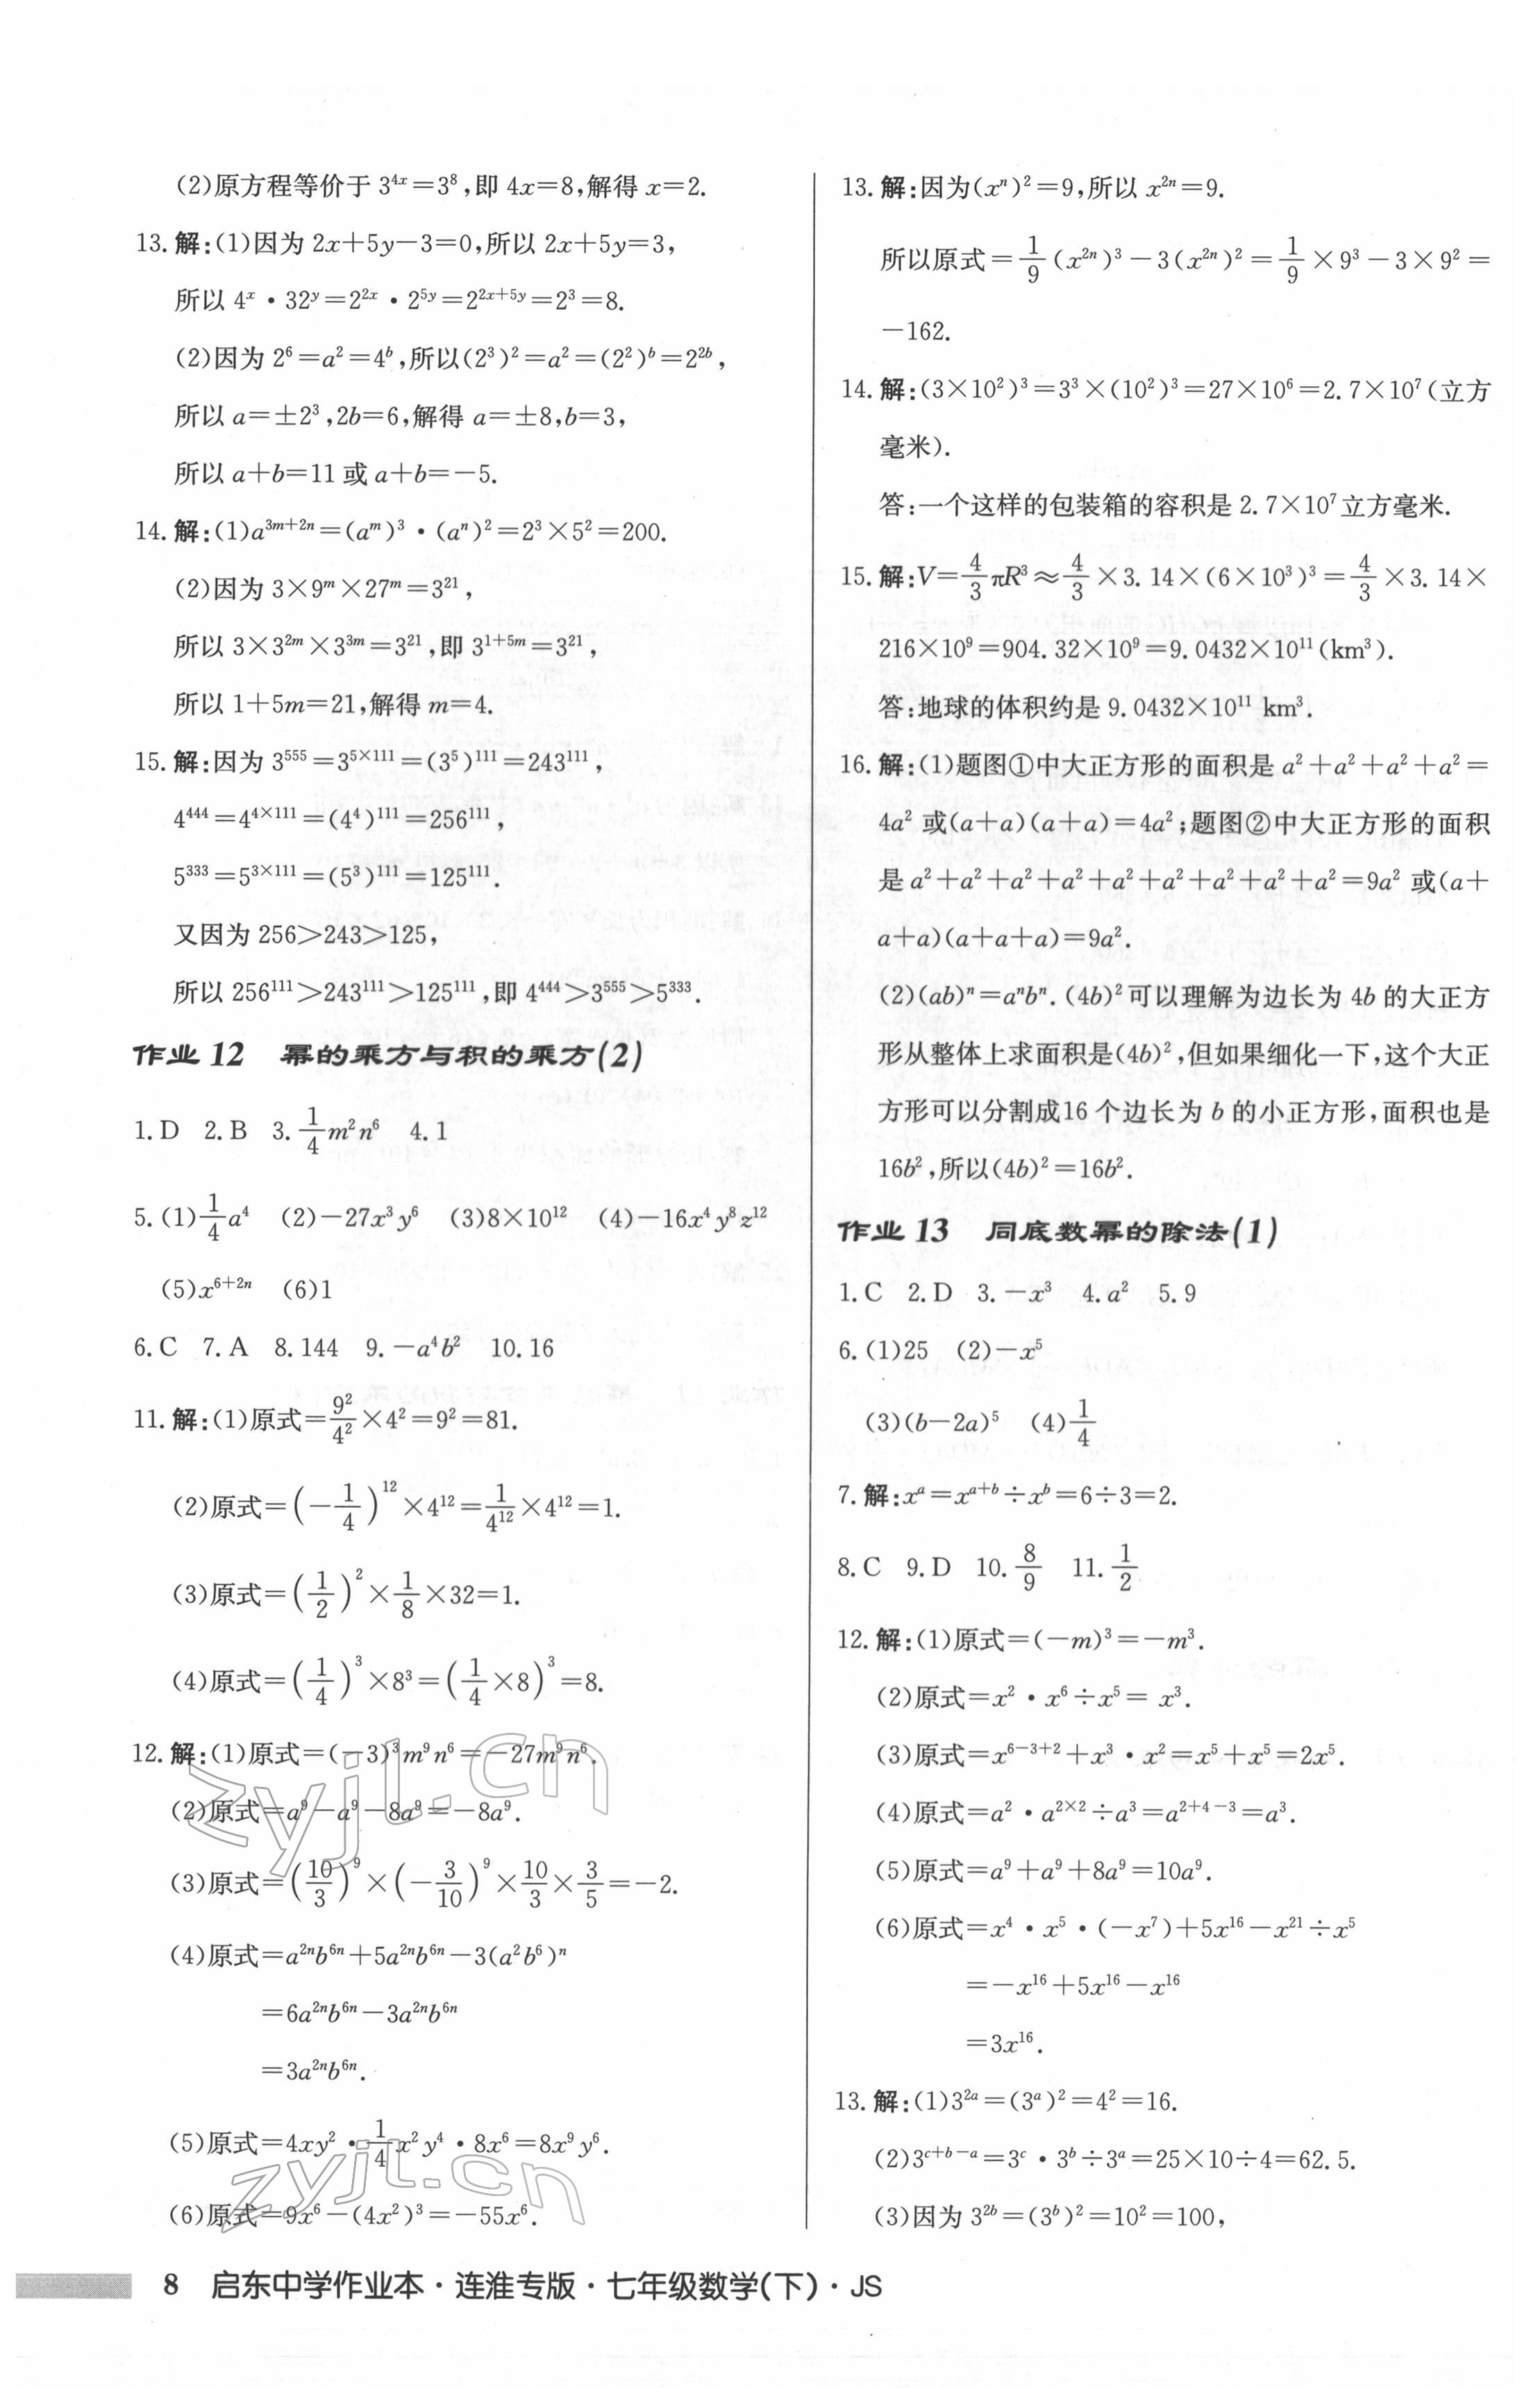 (2)原方程等价于 3⁴ˣ=3⁸,即 4x=8,解得 x=2.
13.解:(1)因为 2x+5y−3=0,所以 2x+5y=3,
所以 4ˣ・32ʸ=2²ˣ・2⁵ʸ=2²ˣ⁺⁵ʸ=2³=8.
(2)因为 2⁶=a²=4ᵇ,所以(2³)²=a²=(2²)ᵇ=2²ᵇ,
所以 a=±2³,2b=6,解得 a=±8,b=3,
所以 a+b=11 或 a+b=−5.
14.解:(1)a³ᵐ⁺²ⁿ=(aᵐ)³・(aⁿ)²=2³×5²=200.
(2)因为 3×9ᵐ×27ᵐ=3²¹,
所以 3×3²ᵐ×3³ᵐ=3²¹,即 3¹⁺⁵ᵐ=3²¹,
所以 1+5m=21,解得 m=4.
15.解:因为 3⁵⁵⁵=3^(5×111)=(3⁵)¹¹¹=243¹¹¹,
4⁴⁴⁴=4^(4×111)=(4⁴)¹¹¹=256¹¹¹,
5³³³=5^(3×111)=(5³)¹¹¹=125¹¹¹.
又因为 256>243>125,
所以 256¹¹¹>243¹¹¹>125¹¹¹,即 4⁴⁴⁴>3⁵⁵⁵>5³³³.
作业 12 幂的乘方与积的乘方(2)
1.D 2.B 3.1/4 m²n⁶ 4.1
5.(1)1/4 a⁴ (2)−27x³y⁶ (3)8×10¹² (4)−16x⁴y⁸z¹²
(5)x⁶⁺²ⁿ (6)1
6.C 7.A 8.144 9.−a⁴b² 10.16
11.解:(1)原式=9²/4²×4²=9²=81.
(2)原式=(−1/4)¹²×4¹²=1/4¹²×4¹²=1.
(3)原式=(1/2)²×1/8×32=1.
(4)原式=(1/4)³×8³=(1/4×8)³=8.
12.解:(1)原式=(−3)³m⁹n⁶=−27m⁹n⁶.
(2)原式=a⁹−a⁹−8a⁹=−8a⁹.
(3)原式=(10/3)⁹×(−3/10)⁹×10/3×3/5=−2.
(4)原式=a²ⁿb⁶ⁿ+5a²ⁿb⁶ⁿ−3(a²b⁶)ⁿ
=6a²ⁿb⁶ⁿ−3a²ⁿb⁶ⁿ
=3a²ⁿb⁶ⁿ.
(5)原式=4xy²・1/4 x²y⁴・8x⁶=8x⁹y⁶.
(6)原式=9x⁶−(4x²)³=−55x⁶.
13.解:因为(xⁿ)²=9,所以 x²ⁿ=9.
所以原式=1/9(x²ⁿ)³−3(x²ⁿ)²=1/9×9³−3×9²=
−162.
14.解:(3×10²)³=3³×(10²)³=27×10⁶=2.7×10⁷(立方
毫米).
答:一个这样的包装箱的容积是 2.7×10⁷立方毫米.
15.解:V=4/3πR³≈4/3×3.14×(6×10³)³=4/3×3.14×
216×10⁹=904.32×10⁹=9.0432×10¹¹(km³).
答:地球的体积约是 9.0432×10¹¹ km³.
16.解:(1)题图①中大正方形的面积是 a²+a²+a²+a²=
4a² 或(a+a)(a+a)=4a²;题图②中大正方形的面积
是 a²+a²+a²+a²+a²+a²+a²+a²+a²=9a² 或(a+
a+a)(a+a+a)=9a².
(2)(ab)ⁿ=aⁿbⁿ.(4b)²可以理解为边长为 4b 的大正方
形从整体上求面积是(4b)²,但如果细化一下,这个大正
方形可以分割成16 个边长为 b 的小正方形,面积也是
16b²,所以(4b)²=16b².
作业 13 同底数幂的除法(1)
1.C 2.D 3.−x³ 4.a² 5.9
6.(1)25 (2)−x⁵
(3)(b−2a)⁵ (4)1/4
7.解:xᵃ=xᵃ⁺ᵇ÷xᵇ=6÷3=2.
8.C 9.D 10.8/9 11.1/2
12.解:(1)原式=(−m)³=−m³.
(2)原式=x²・x⁶÷x⁵= x³.
(3)原式=x⁶⁻³⁺²+x³・x²=x⁵+x⁵=2x⁵.
(4)原式=a²・a^(2×2)÷a³=a²⁺⁴⁻³=a³.
(5)原式=a⁹+a⁹+8a⁹=10a⁹.
(6)原式=x⁴・x⁵・(−x⁷)+5x¹⁶−x²¹÷x⁵
=−x¹⁶+5x¹⁶−x¹⁶
=3x¹⁶.
13.解:(1)3²ᵃ=(3ᵃ)²=4²=16.
(2)3ᶜ⁺ᵇ⁻ᵃ=3ᶜ・3ᵇ÷3ᵃ=25×10÷4=62.5.
(3)因为 3²ᵇ=(3ᵇ)²=10²=100,
zyjl.cn
zyjl.cn
8 启东中学作业本・连淮专版・七年级数学(下)・JS